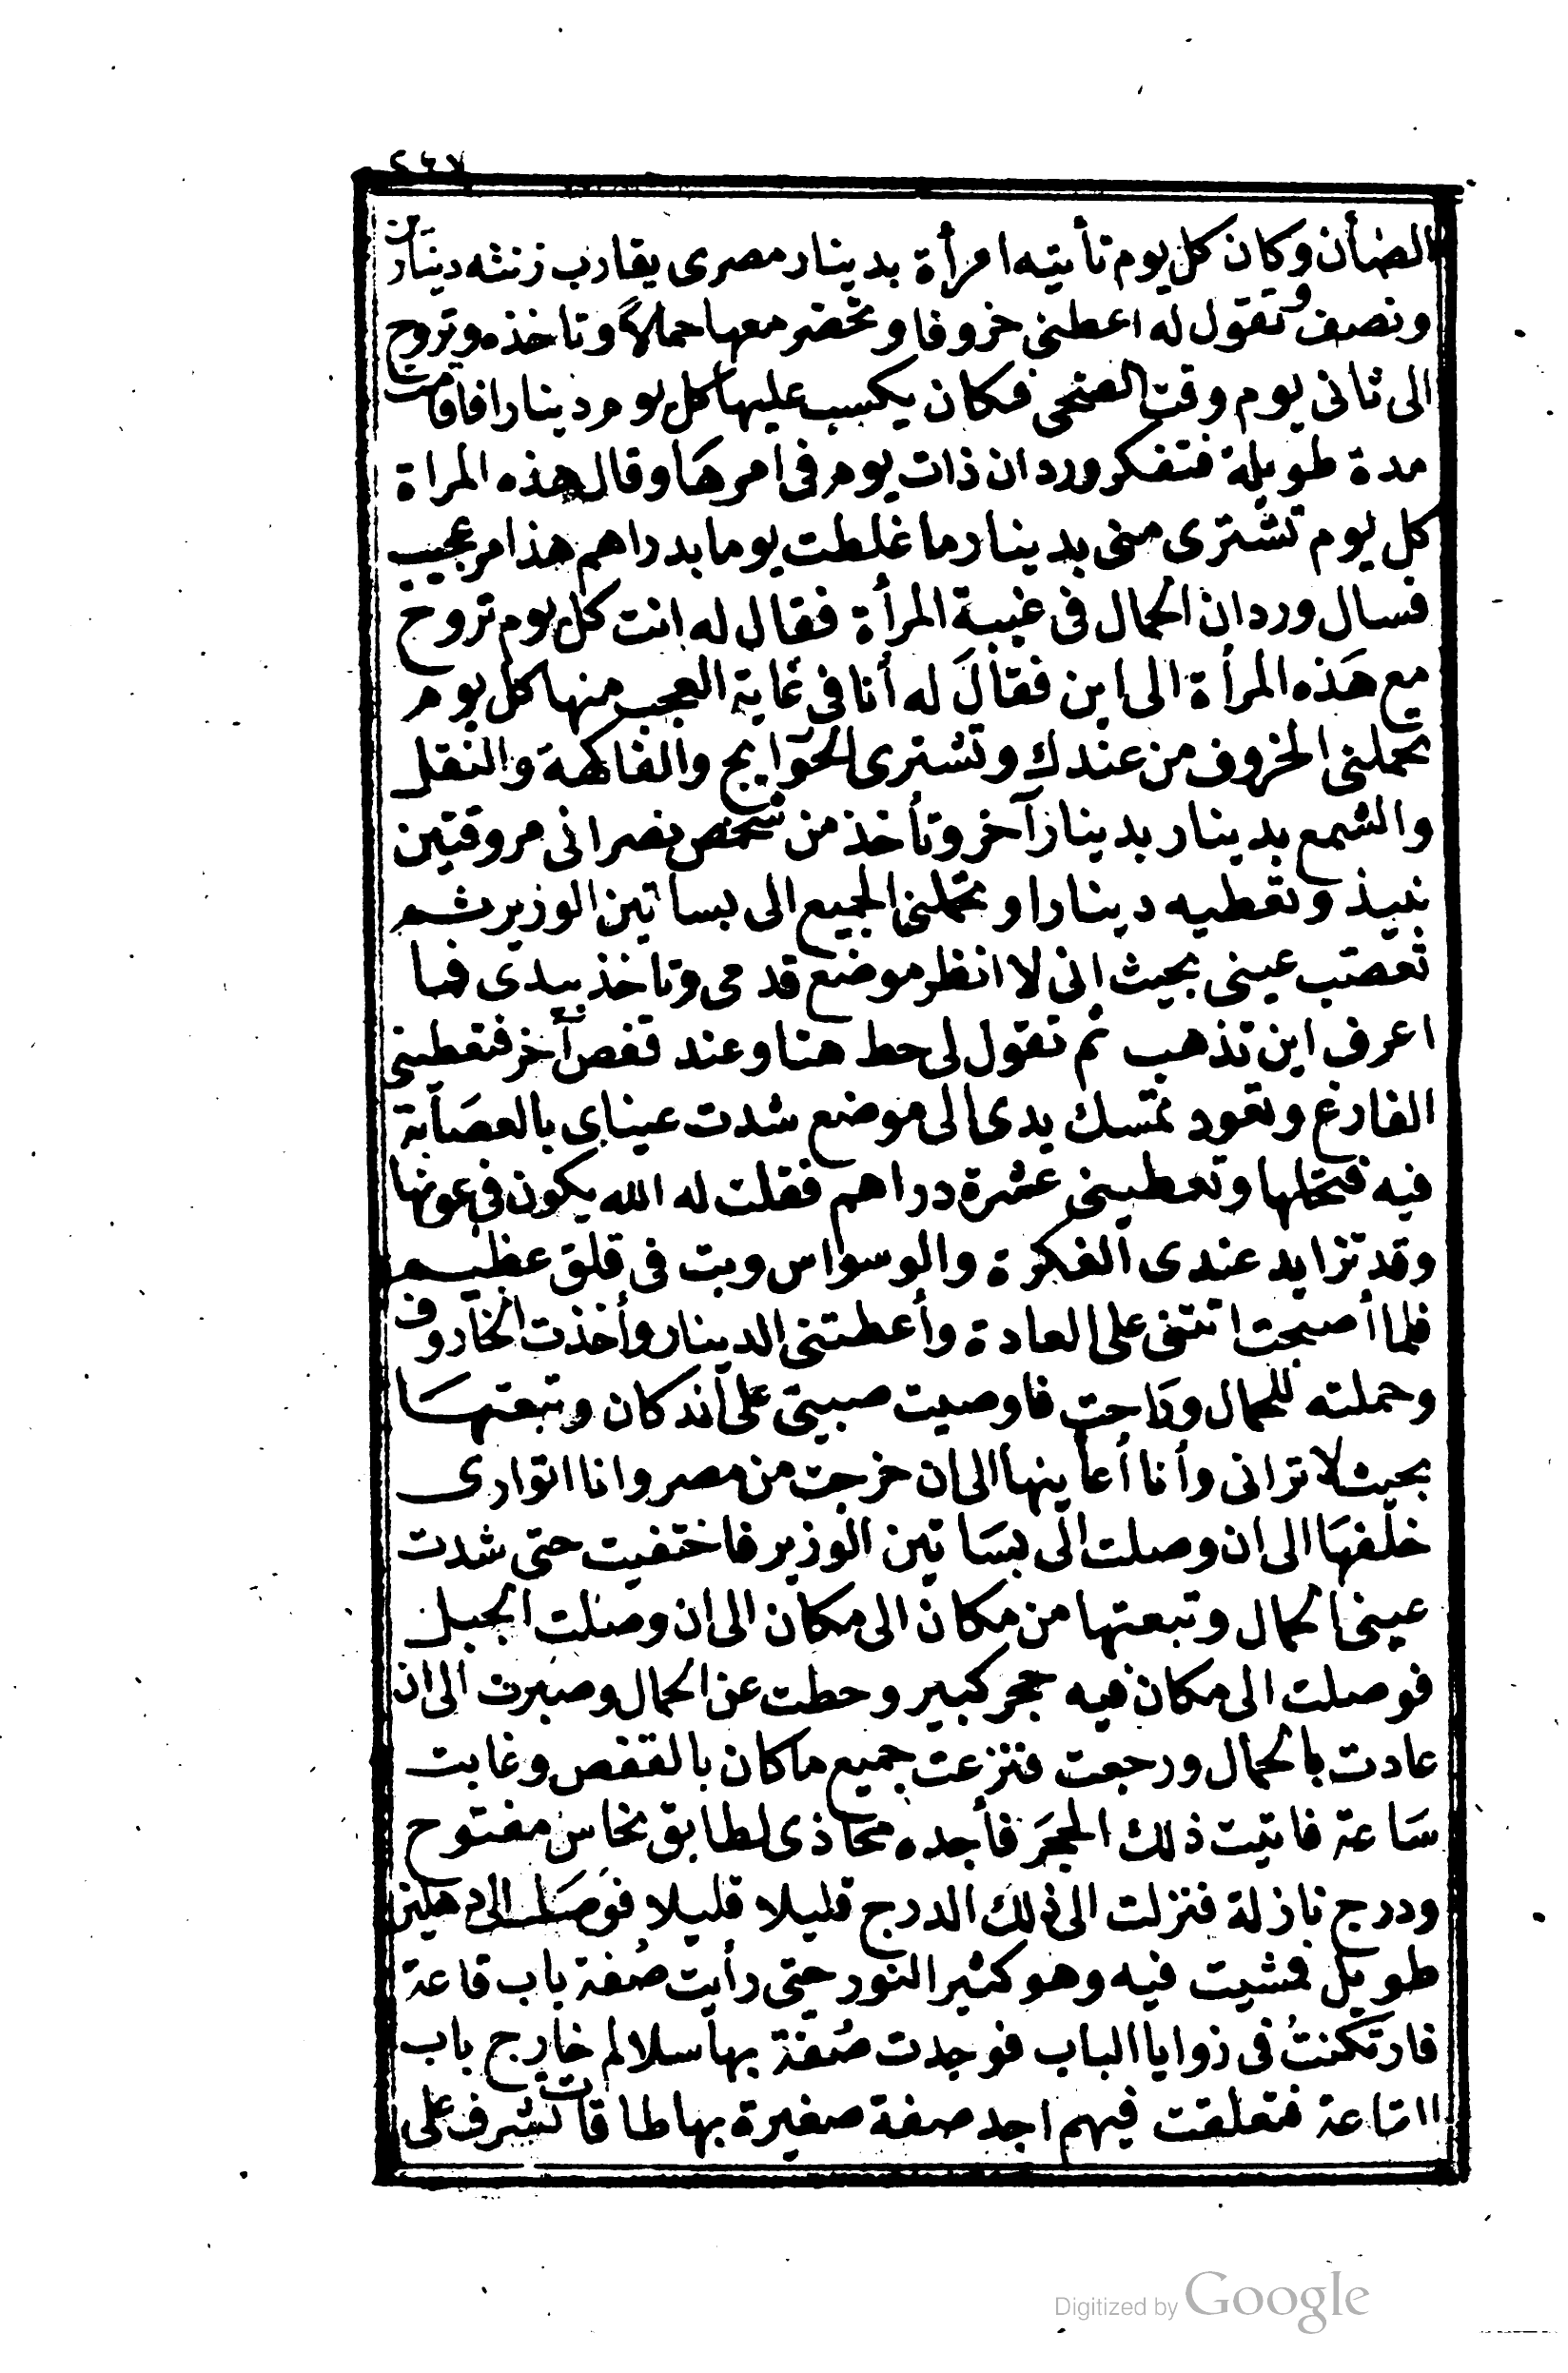 ٢٦٧
الضأن وكان كل يوم تأتيه امرأة بدينار مصرى يقارب زنته دينارين
ونصف وتقول له اعطنى خروفا وتحضر معها حمالاً وتاخذه وتروح
الى ثانى يوم وقت الضحى فكان يكسب عليها كل يوم دينارا فاقامت
مدة طويلة فتفكر وردان ذات يوم فى امرها وقال هذه المراة
كل يوم تشترى منى بدينار ما غلطت يوما بدراهم هذا امر عجيب
فسال وردان الحمال فى غيبة المرأة فقال له انت كل يوم تروح
مع هَذه المرأة الى اين فقالَ له أنا فى غاية العجب منها كل يوم
تحملنى الخروف من عندك وتشترى الحوايج والفاكهة والنقل
والشمع بدينار بدينار آخر وتأخذ من شخص نصرانى مروقتين
نبيذ وتعطيه دينارا وتحملنى الجميع الى بساتين الوزير ثم
تعصب عينى بحيث إنى لا انظر موضع قدمى وتاخذ بيدى فما
اعرف اين تذهب ثم تقول لى حط هنا وعند قفص آخر فتعطينى
الفارغ وتعود تمسك يدى الى موضع شدت عيناى بالعصَابة
فيه فتحلها وتعطينى عشرة دراهم فقلت له الله يكون فى عونها
وقد تزايد عندى الفكرة والوسواس وبت فى قلق عظيم
فلما أصبحت اتتنى على العادة وأعطتنى الدينار وأخذت الخاروف
وحملته للحمال ورَاحت فاوصيت صبيتى على الدكان وتبعتهَا
بحيث لا ترانى وأنا أعاينها الى ان خرجت من مصر وانا اتوارى
خلفهَا الى ان وصلت الى بسَاتين الوزير فاختفيت حتى شدت
عينى الحمال وتبعتها من مكان الى مكان الى ان وصلت الجبل
فوصلت الى مكان فيه حجر كبير وحطت عن الحمال وصبرت الى ان
عادت بالحمال ورجعت فنزعت جميع ما كان بالقفص وغابت
سَاعة فاتيت ذلك الحجَر فأجده محاذى لطابق نحاس مفتوح
ودرج نازلة فنزلت الى ذلك الدرج قليلا قليلا فوَصَلت الى دهليز
طويل فمشيت فيه وهو كثير النور حتى رأيت صُفة باب قاعة
فارتكنتُ فى زوايا الباب فوجدت صُفة بها سلالم خارج باب
القاعة فتعلقت فيهم اجد صفة صغيرة بها طاقات تشرف على
Digitized by Google